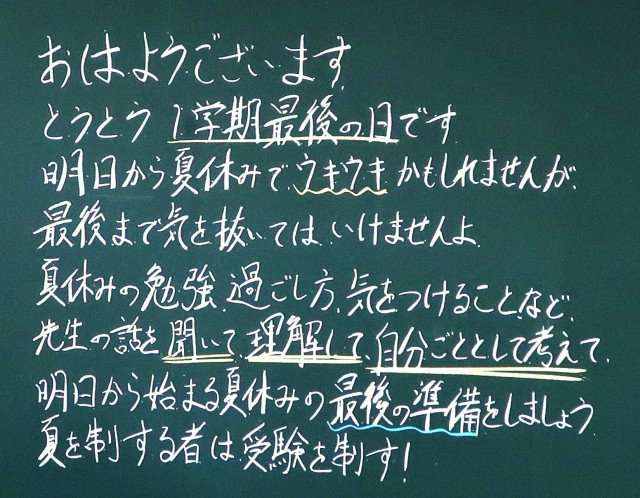 おはようございます
とうとう1学期最後の日です
明日から夏休みで、ウキウキかもしれませんが、
最後まで気を抜いてはいけませんよ
夏休みの勉強、過ごし方、気をつけることなど、
先生の話を聞いて、理解して、自分ごととして考えて、
明日から始まる夏休みの最後の準備をしましょう
夏を制する者は受験を制す!